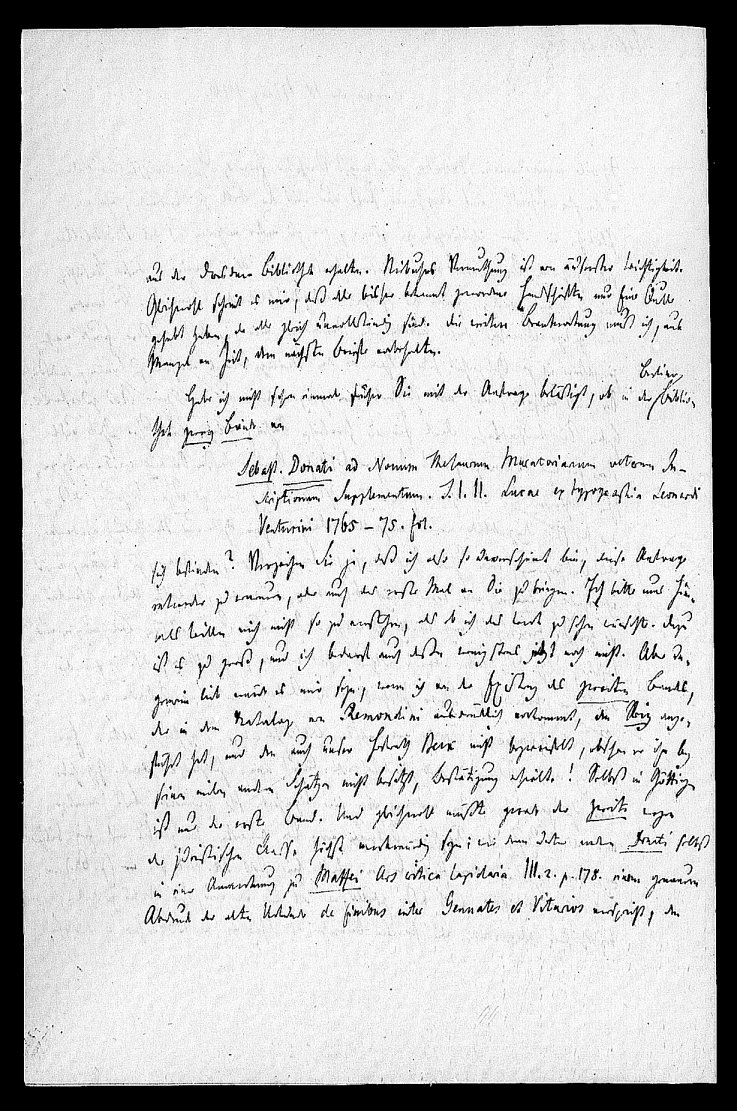 aus der Dresdner Bibliothek erhalten. Niebuhrs Vermuthung ist von äußerster Wichtigkeit.
Gleichwohl scheint es mir, daß alle bisher bekannt gewordene Handschriften nur Eine Quelle
gehabt haben, da alle gleich unvollständig sind. Die weitere Beantwortung muß ich, aus
Mangel an Zeit, dem nächsten Briefe vorbehalten.
Habe ich nicht schon einmal früher Sie mit der Anfrage belästigt, ob in der Berliner Biblio-
thek zwey Bände von
Sebast. Donati ad Novum Thesaurum Muratorianum veterum In-
scriptionum Supplementum. T. I. II. Lucae ex typographia Leonardi
Venturini 1765–75. fol.
sich befinden? Verzeihen Sie ja, daß ich also so unverschämt bin, diese Anfrage
entweder zu erneuern, oder auch das erste Mal an Sie zu bringen. Ich bitte um
willen mich nicht so zu verstehen, als ob ich das Werk zu sehen wünschte. Dazu
ist es zu groß, und ich bedarf auch dessen wenigstens jetzt noch nicht. Aber un-
gemein lieb würde es mir seyn, wenn ich von der Existenz des zweiten Bandes,
der in dem Katalog von Remondini ausdrücklich vorkommt, den ange-
führt hat, und den auch unser Hofrath Beck nicht bezweifelt, obschon er ihn bey
seinen vielen andern Schätzen nicht besitzt, Bestätigung erhielte! Selbst in Göttingen
ist nur der erste Band. Und gleichwohl müßte gerade der zweite wegen
der juristischen Classe höchst merkwürdig seyn; in dem unter andern Donati selbst
in einer Anmerkung zu Maffei Ars critica lapidaria III. 2. p. 178. einen genauern
Abdruck der alten Urkunde de finibus inter Genuates et Viturios verspricht, den